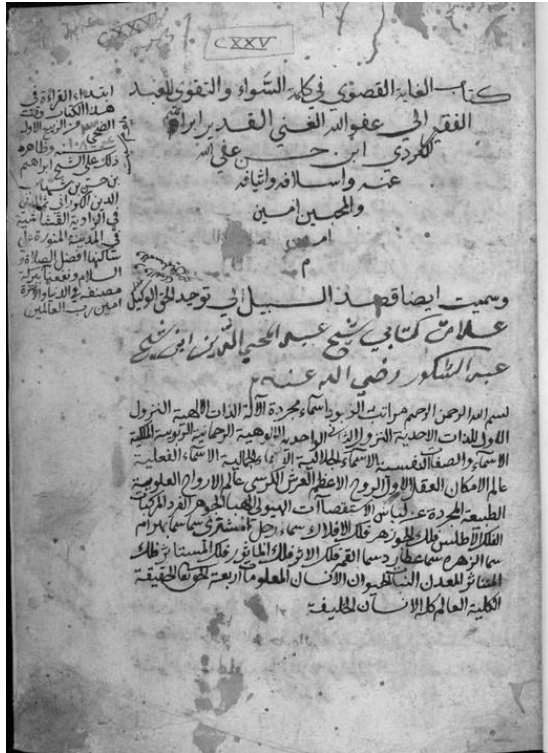 CXXV
CXXV
كتاب الغاية القصوى في كلمة السواء والتقوى للعبد
الفقير إلى عفو الله الغني القدير ابراهيم
الكردي ابن حسن عفى الله
عنه واسلافه واثيافه
والمحبين امين
امين
م
وسميت ايضا قصد السبيل الى توحيد الحق الوكيل
علامت كتابي شيخ عبد المحيي ابن شيخ
عبد الشكور رضي الله عنه
بسم الله الرحمن الرحيم مراتب الوجود اسماء مجردة الآلة الذات الالهية النزول
الاول للذات الاحدية النزول الثاني الواحدية الالوهية الرحمانية الربوبية الملكية
الاسماء والصفات النفسية الاسماء الجلالية الاسماء الجمالية الاسماء الفعلية
عالم الامكان العقل الاول الروح الاعظم العرش الكرسي عالم الارواح العلوية
الطبيعة المجردة عن لباس الاستقصاآت الهيولى الهبا الجوهر الفرد المركبات
الفلك الاطلس فلك الجوزهر فلك الافلاك سماء زحل سما بهرام
سما الزهرة سما عطارد سما القمر فلك الاثير فلك فلك المستاثر فلك
المتاثر المعدن النبات الحيوان الانسان المعلومات اربعة الحق تعالى الحقيقة
الكلية العالم كله الانسان الخليفة
ابتداء القراءة في
هذا الكتاب وقت
الضحى من الربيع الاول
ذلك على الشيخ ابراهيم
بن حسن بن شهاب
الدين الكوراني ثم المدني
في الزاوية القشاشية
في المدينة المنورة على
ساكنها افضل الصلاة و
السلام ونفعنا ببركة
مصنفه في الدنيا والآخرة
امين رب العالمين